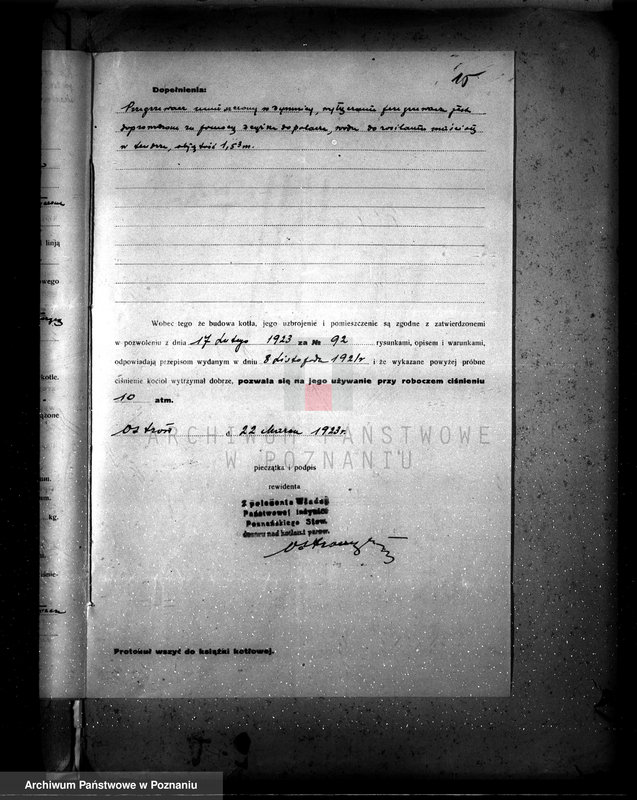 15
Dopełnienia:
Przegrzewacz umieszczony w dymnicy, wyłączanie przegrzewacza jest
doprowadzone za pomocą do wody
w tendrze, objętość 1,53 m.
Wobec tego że budowa kotła, jego uzbrojenie i pomieszczenie są zgodne z zatwierdzonemi
w pozwoleniu z dnia 17 Lutego 1923 za № 92 rysunkami, opisem i warunkami,
odpowiadają przepisom wydanym w dniu 8 Listopada 1921 r. i że wykazane powyżej próbne
ciśnienie kocioł wytrzymał dobrze, pozwala się na jego używanie przy roboczem ciśnieniu
10 atm.
Ostrów d. 22 Marca 1923 r.
ARCHIWUM PAŃSTWOWE
W POZNANIU
pieczątka i podpis
rewidenta
Z polecenia Władzy
Państwowej inżynier
Poznańskiego Stow.
dozoru nad kotłami parow.
Protokuł wszyć do książki kotłowej.
linją
owego
kotle.
kg.
Archiwum Państwowe w Poznaniu